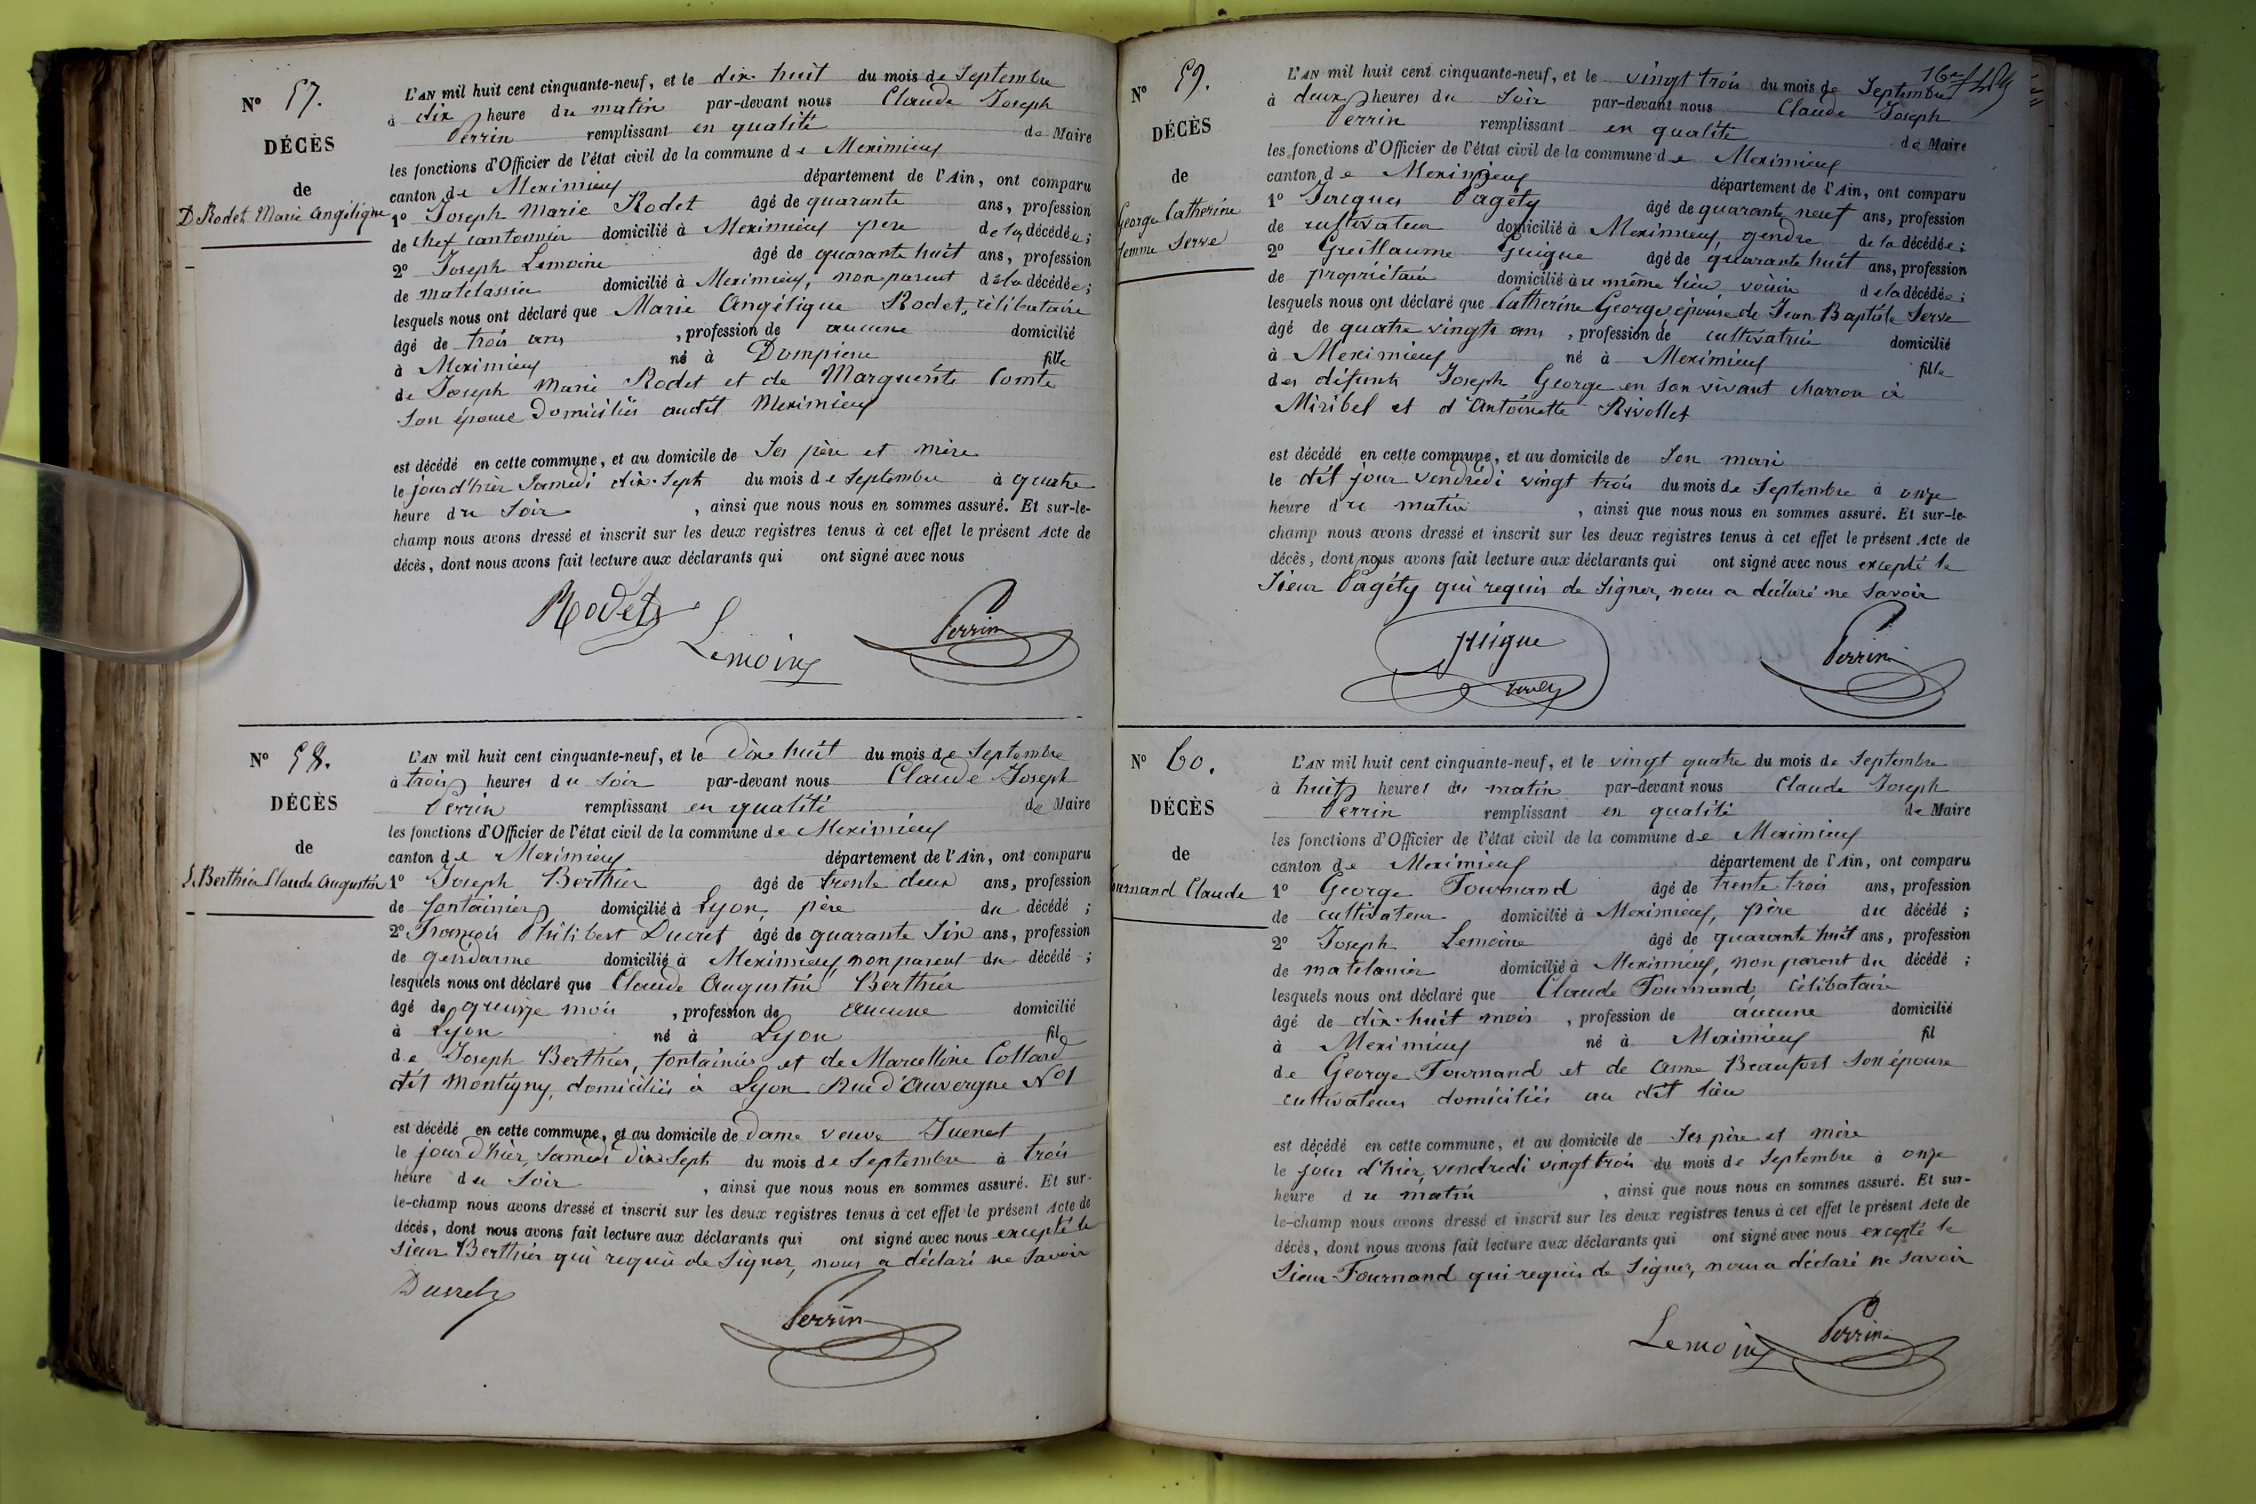 N° 57.
DÉCÈS
de
D. Rodet Marie Angélique
L'AN mil huit cent cinquante-neuf, et le dix huit du mois de Septembre
à dix heure du matin par-devant nous Claude Joseph
Perrin remplissant en qualité de Maire
les fonctions d'Officier de l'état civil de la commune de Meximieux
canton de Meximieux département de l'Ain, ont comparu
1° Joseph Marie Rodet âgé de quarante ans, profession
de chef cantonnier domicilié à Meximieux père de la décédée;
2° Joseph Lemoine âgé de quarante huit ans, profession
de matelassier domicilié à Meximieux, non parent de la décédée;
lesquels nous ont déclaré que Marie Angélique Rodet, célibataire
âgé de trois ans, profession de aucune domicilié
à Meximieux né à Dompierre fille
de Joseph Marie Rodet et de Marguerite Comte
son épouse domiciliés audit Meximieux
est décédé en cette commune, et au domicile de ses père et mère
le jour d'hier Samedi dix-sept du mois de Septembre à quatre
heure du soir, ainsi que nous nous en sommes assuré. Et sur-le-
champ nous avons dressé et inscrit sur les deux registres tenus à cet effet le présent Acte de
décès, dont nous avons fait lecture aux déclarants qui ont signé avec nous
Rodet
Lemoine
Perrin
N° 58.
DÉCÈS
de
Berthier Claude Augustin
L'AN mil huit cent cinquante-neuf, et le dix huit du mois de Septembre
à trois heures du soir par-devant nous Claude Joseph
Perrin remplissant en qualité de Maire
les fonctions d'Officier de l'état civil de la commune de Meximieux
canton de Meximieux département de l'Ain, ont comparu
1° Joseph Berthier âgé de trente deux ans, profession
de fontainier domicilié à Lyon, père du décédé;
2° François Philibert Ducret âgé de quarante six ans, profession
de gendarme domicilié à Meximieux, non parent du décédé;
lesquels nous ont déclaré que Claude Augustin Berthier
âgé de quinze mois, profession de aucune domicilié
à Lyon né à Lyon fils
de Joseph Berthier, fontainier et de Marcelline Collard
dit Montigny, domiciliés à Lyon Rue d'Auvergne N° 1
est décédé en cette commune, et au domicile de dame veuve Juenet
le jour d'hier, Samedi dix Sept du mois de Septembre à trois
heure du soir, ainsi que nous nous en sommes assuré. Et sur-
le-champ nous avons dressé et inscrit sur les deux registres tenus à cet effet le présent Acte de
décès, dont nous avons fait lecture aux déclarants qui ont signé avec nous excepté le
sieur Berthier qui requis de signer, nous a déclaré ne savoir
Ducret
Perrin
N° 59.
DÉCÈS
de
George Catherine
femme Serve
L'AN mil huit cent cinquante-neuf, et le vingt trois du mois de Septembre
à deux heures du soir par-devant nous Claude Joseph
Perrin remplissant en qualité de Maire
les fonctions d'Officier de l'état civil de la commune de Meximieux
canton de Meximieux département de l'Ain, ont comparu
1° Jacques Pagéty âgé de quarante neuf ans, profession
de cultivateur domicilié à Meximieux, gendre de la décédée;
2° Guillaume Guigue âgé de quarante huit ans, profession
de propriétaire domicilié au même lieu voisin de la décédée;
lesquels nous ont déclaré que Catherine George épouse de Jean Baptiste Serve
âgé de quatre vingts ans, profession de cultivatrice domicilié
à Meximieux né à Meximieux fille
des défunts Joseph George en son vivant charron à
Miribel et d'Antoinette Rivollet
est décédé en cette commune, et au domicile de son mari
le dit jour vendredi vingt trois du mois de Septembre à onze
heure du matin, ainsi que nous nous en sommes assuré. Et sur-le-
champ nous avons dressé et inscrit sur les deux registres tenus à cet effet le présent Acte de
décès, dont nous avons fait lecture aux déclarants qui ont signé avec nous excepté le
sieur Pagéty qui requis de signer, nous a déclaré ne savoir
guigue
Perrin
N° 60.
DÉCÈS
de
Tournand Claude
L'AN mil huit cent cinquante-neuf, et le vingt quatre du mois de Septembre
à huit heures du matin par-devant nous Claude Joseph
Perrin remplissant en qualité de Maire
les fonctions d'Officier de l'état civil de la commune de Meximieux
canton de Meximieux département de l'Ain, ont comparu
1° George Tournand âgé de trente trois ans, profession
de cultivateur domicilié à Meximieux, père du décédé;
2° Joseph Lemoine âgé de quarante huit ans, profession
de matelassier domicilié à Meximieux, non parent du décédé;
lesquels nous ont déclaré que Claude Tournand, célibataire
âgé de dix-huit mois, profession de aucune domicilié
à Meximieux né à Meximieux fil
de George Tournand et de Anne Beaufort son épouse
cultivateurs domiciliés au dit lieu
est décédé en cette commune, et au domicile de ses père et mère
le jour d'hier, vendredi vingt trois du mois de Septembre à onze
heure du matin, ainsi que nous nous en sommes assuré. Et sur-
le-champ nous avons dressé et inscrit sur les deux registres tenus à cet effet le présent Acte de
décès, dont nous avons fait lecture aux déclarants qui ont signé avec nous excepté le
sieur Tournand qui requis de signer, nous a déclaré ne savoir
Lemoine
Perrin